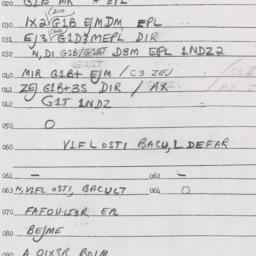 030 1X2/G1B EJMDM, EPL
031 EJ3/G1D3MEPL DIR
032 N, DI G1B/G1ST D3M EPL 1NDZ2
040 MIR G1B+ EJM / C3 ZEJ
041 ZEJ G1B+3S DIR / AX
042 G1T 1NDZ
050 O
060 VLFLOSTI BACU, L DEFAR
061 — 062 —
063 N, VLFL OSTI, BACULT 064 O
070 FAFOULTSR EPL
080 BEJME
090 A O1X3R BDIM